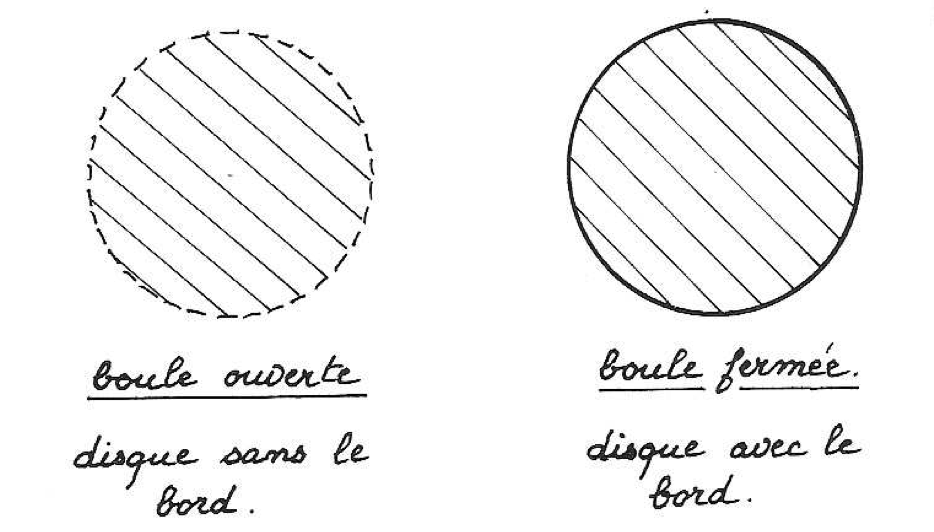 boule ouverte
disque sans le
bord.
boule fermée.
disque avec le
bord.